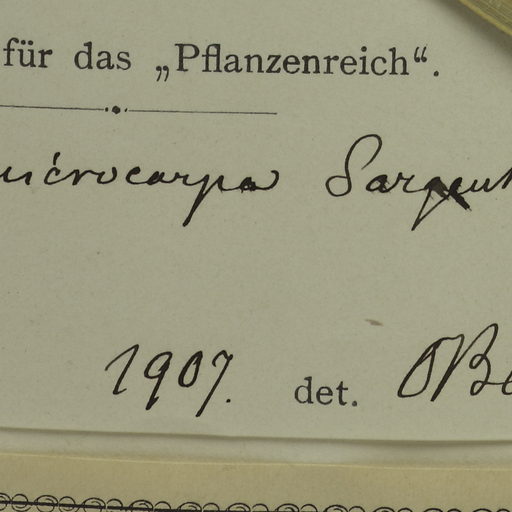 für das „Pflanzenreich“.
microcarpa Sargent
1907. det. OBe